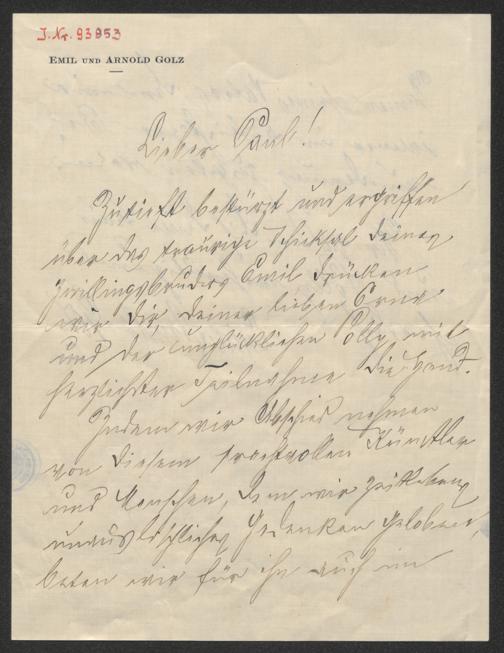 J. Nr. 93953
EMIL UND ARNOLD GOLZ
Lieber Paul!
Zutiefst bestürzt und ergriffen
über das traurige Schicksal deines
Zwillingsbruders Emil drücken
wir dir, deiner lieben Erna
und der unglücklichen Polly mit
herzlichster Teilnahme die Hand.
Indem wir Abschied nehmen
von diesem prachtvollen Künstler
und Menschen, dem wir zeitlebens
unauslöschliches Gedenken geloben,
beten wir für ihn auch im